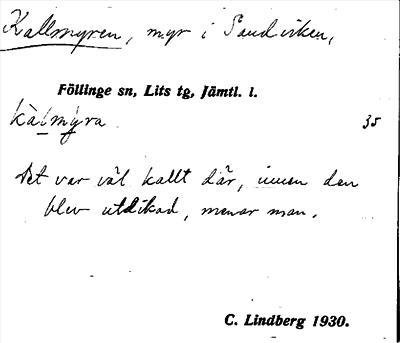 Kallmyren, myr i Sandviken,
Föllinge sn, Lits tg, Jämtl. l.
kàlmỳra 35
Det var väl kallt där, innan den
blev utdikad, menar man.
C. Lindberg 1930.